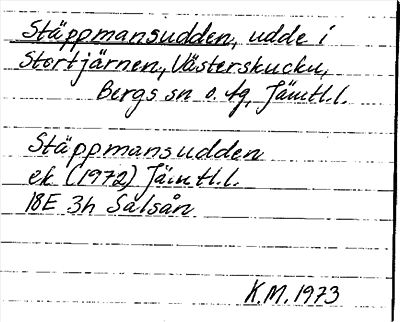 Stäppmansudden, udde i
Stortjärnen, Västerskucku,
Bergs sn o. tg, Jämtl.l.
Stäppmansudden
ek (1972) Jämtl.l.
18E 3h Salsån
K.M. 1973